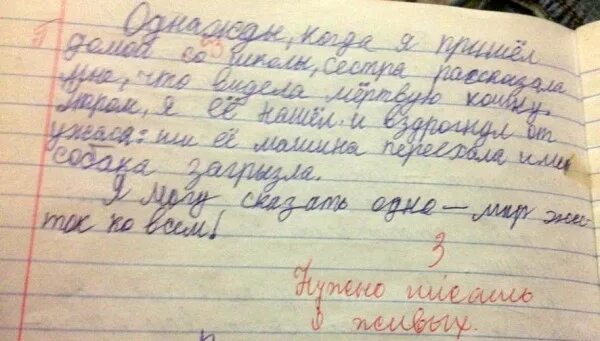 Однажды, когда я пришёл
домой со школы, сестра рассказала
мне, что видела мёртвую кошку.
я её нашёл и вздрогнул от
ужаса: её машина переехала или
собака загрызла.
Я могу сказать одно – мир жес-
ток ко всем!
3
Нужно писать
о живых.